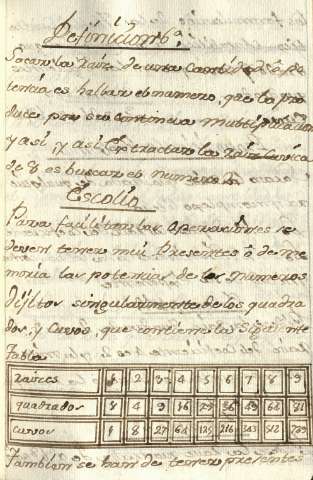 Definicion 6ª.
Sacar la Raiz de una Cantidad ò po
tencia es hallar el numero, que la pro
duce por su continua multiplicacion
y asi, y asi Extractar la Raiz Cuvica
de 8 es buscar el numero 2
Escolio
Para facilitar las operaciones se
deven tener mui presentes ò de me
moria las potencias de los numeros
dijitos singularmente de los quadra
dos, y Cuvos, que contiene la siguiente
Tabla
Raizes 1 2 3 4 5 6 7 8 9
quadrados 1 4 9 16 25 36 49 64 81
cuvos 1 8 27 64 125 216 343 512 729
Tambien se han de tener presentes